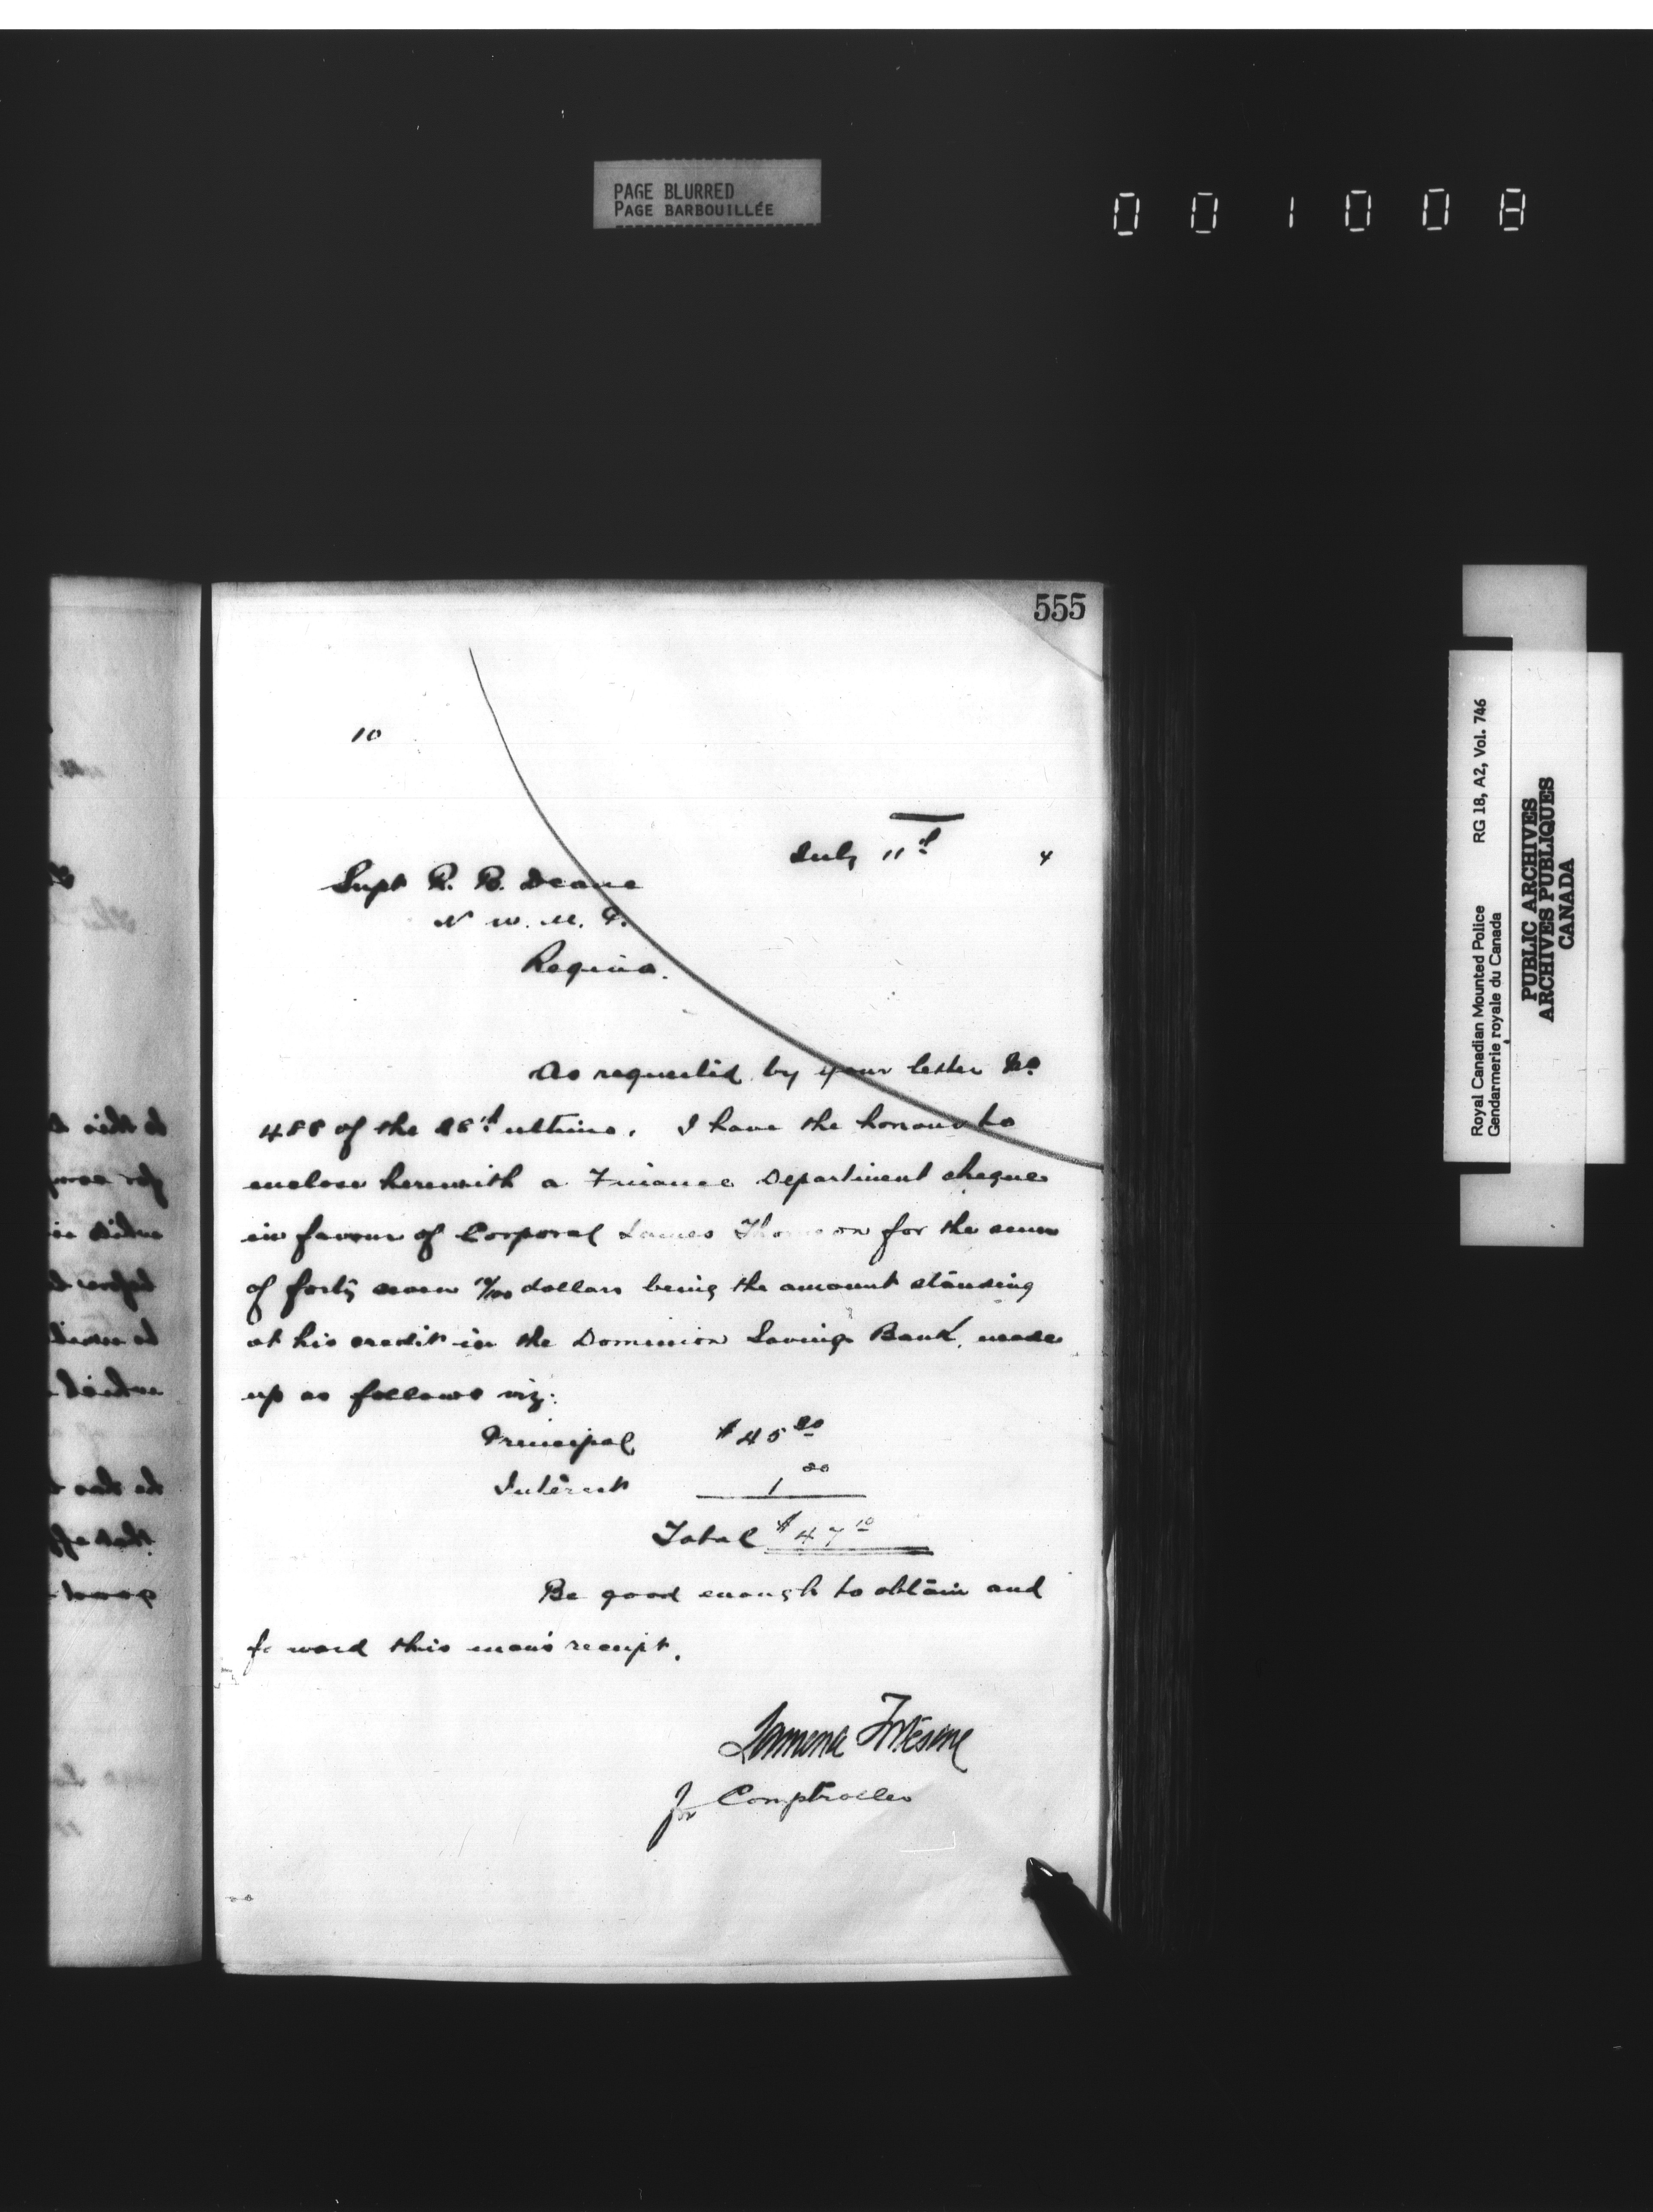 PAGE BLURRED
PAGE BARBOUILLÉE
001008
555
10
July 11th 4
Supt R. B. Deane
N W. M. P.
Regina.
As requested by your letter No
of the ultimo. I have the honour to
enclose herewith a Finance Department cheque
in favour of Corporal James Thomson for the sum
of forty seven 10/100 dollars being the amount standing
at his credit in the Dominion Savings Bank, made
up as follows viz:
Principal $45
Interest 1
Total $47 10
Be good enough to obtain and
fo ward this man's receipt.
for Comptroller
Royal Canadian Mounted Police RG 18, A2, Vol. 746
Gendarmerie royale du Canada
PUBLIC ARCHIVES
ARCHIVES PUBLIQUES
CANADA